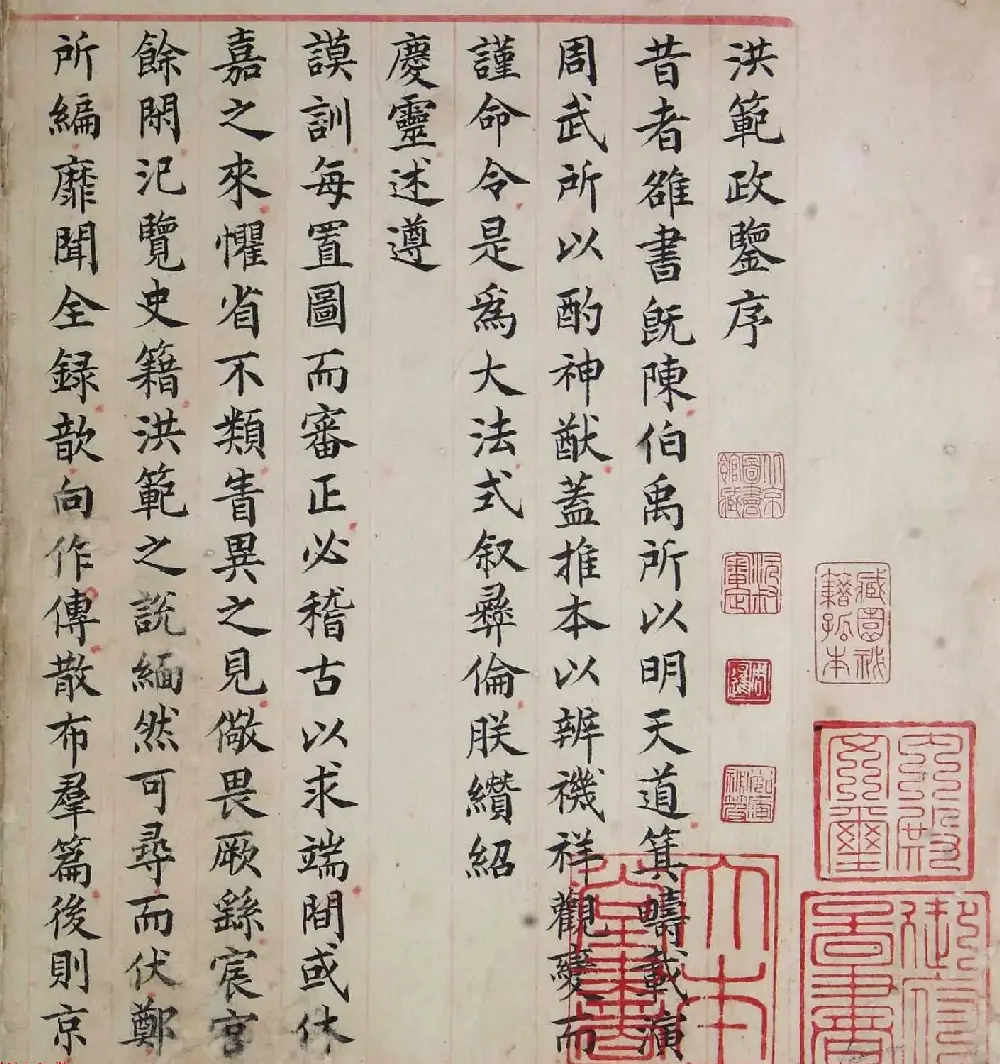 洪範政鑒序
昔者雒書旣陳伯禹所以明天道箕疇載演
周武所以酌神猷蓋推本以辨禨祥觀變而
謹命令是為大法式叙彝倫朕纘紹
慶靈述遵
謨訓每置圖而審正必稽古以求端間或休
嘉之來懼省不類眚異之見儆畏厥繇宸宮
餘閑汜覽史籍洪範之說緬然可尋而伏鄭
所編靡聞全録歆向作傳散布羣篇後則京
北京圖書館藏
藏園秘籍孤本
內殿文璽
御府圖書